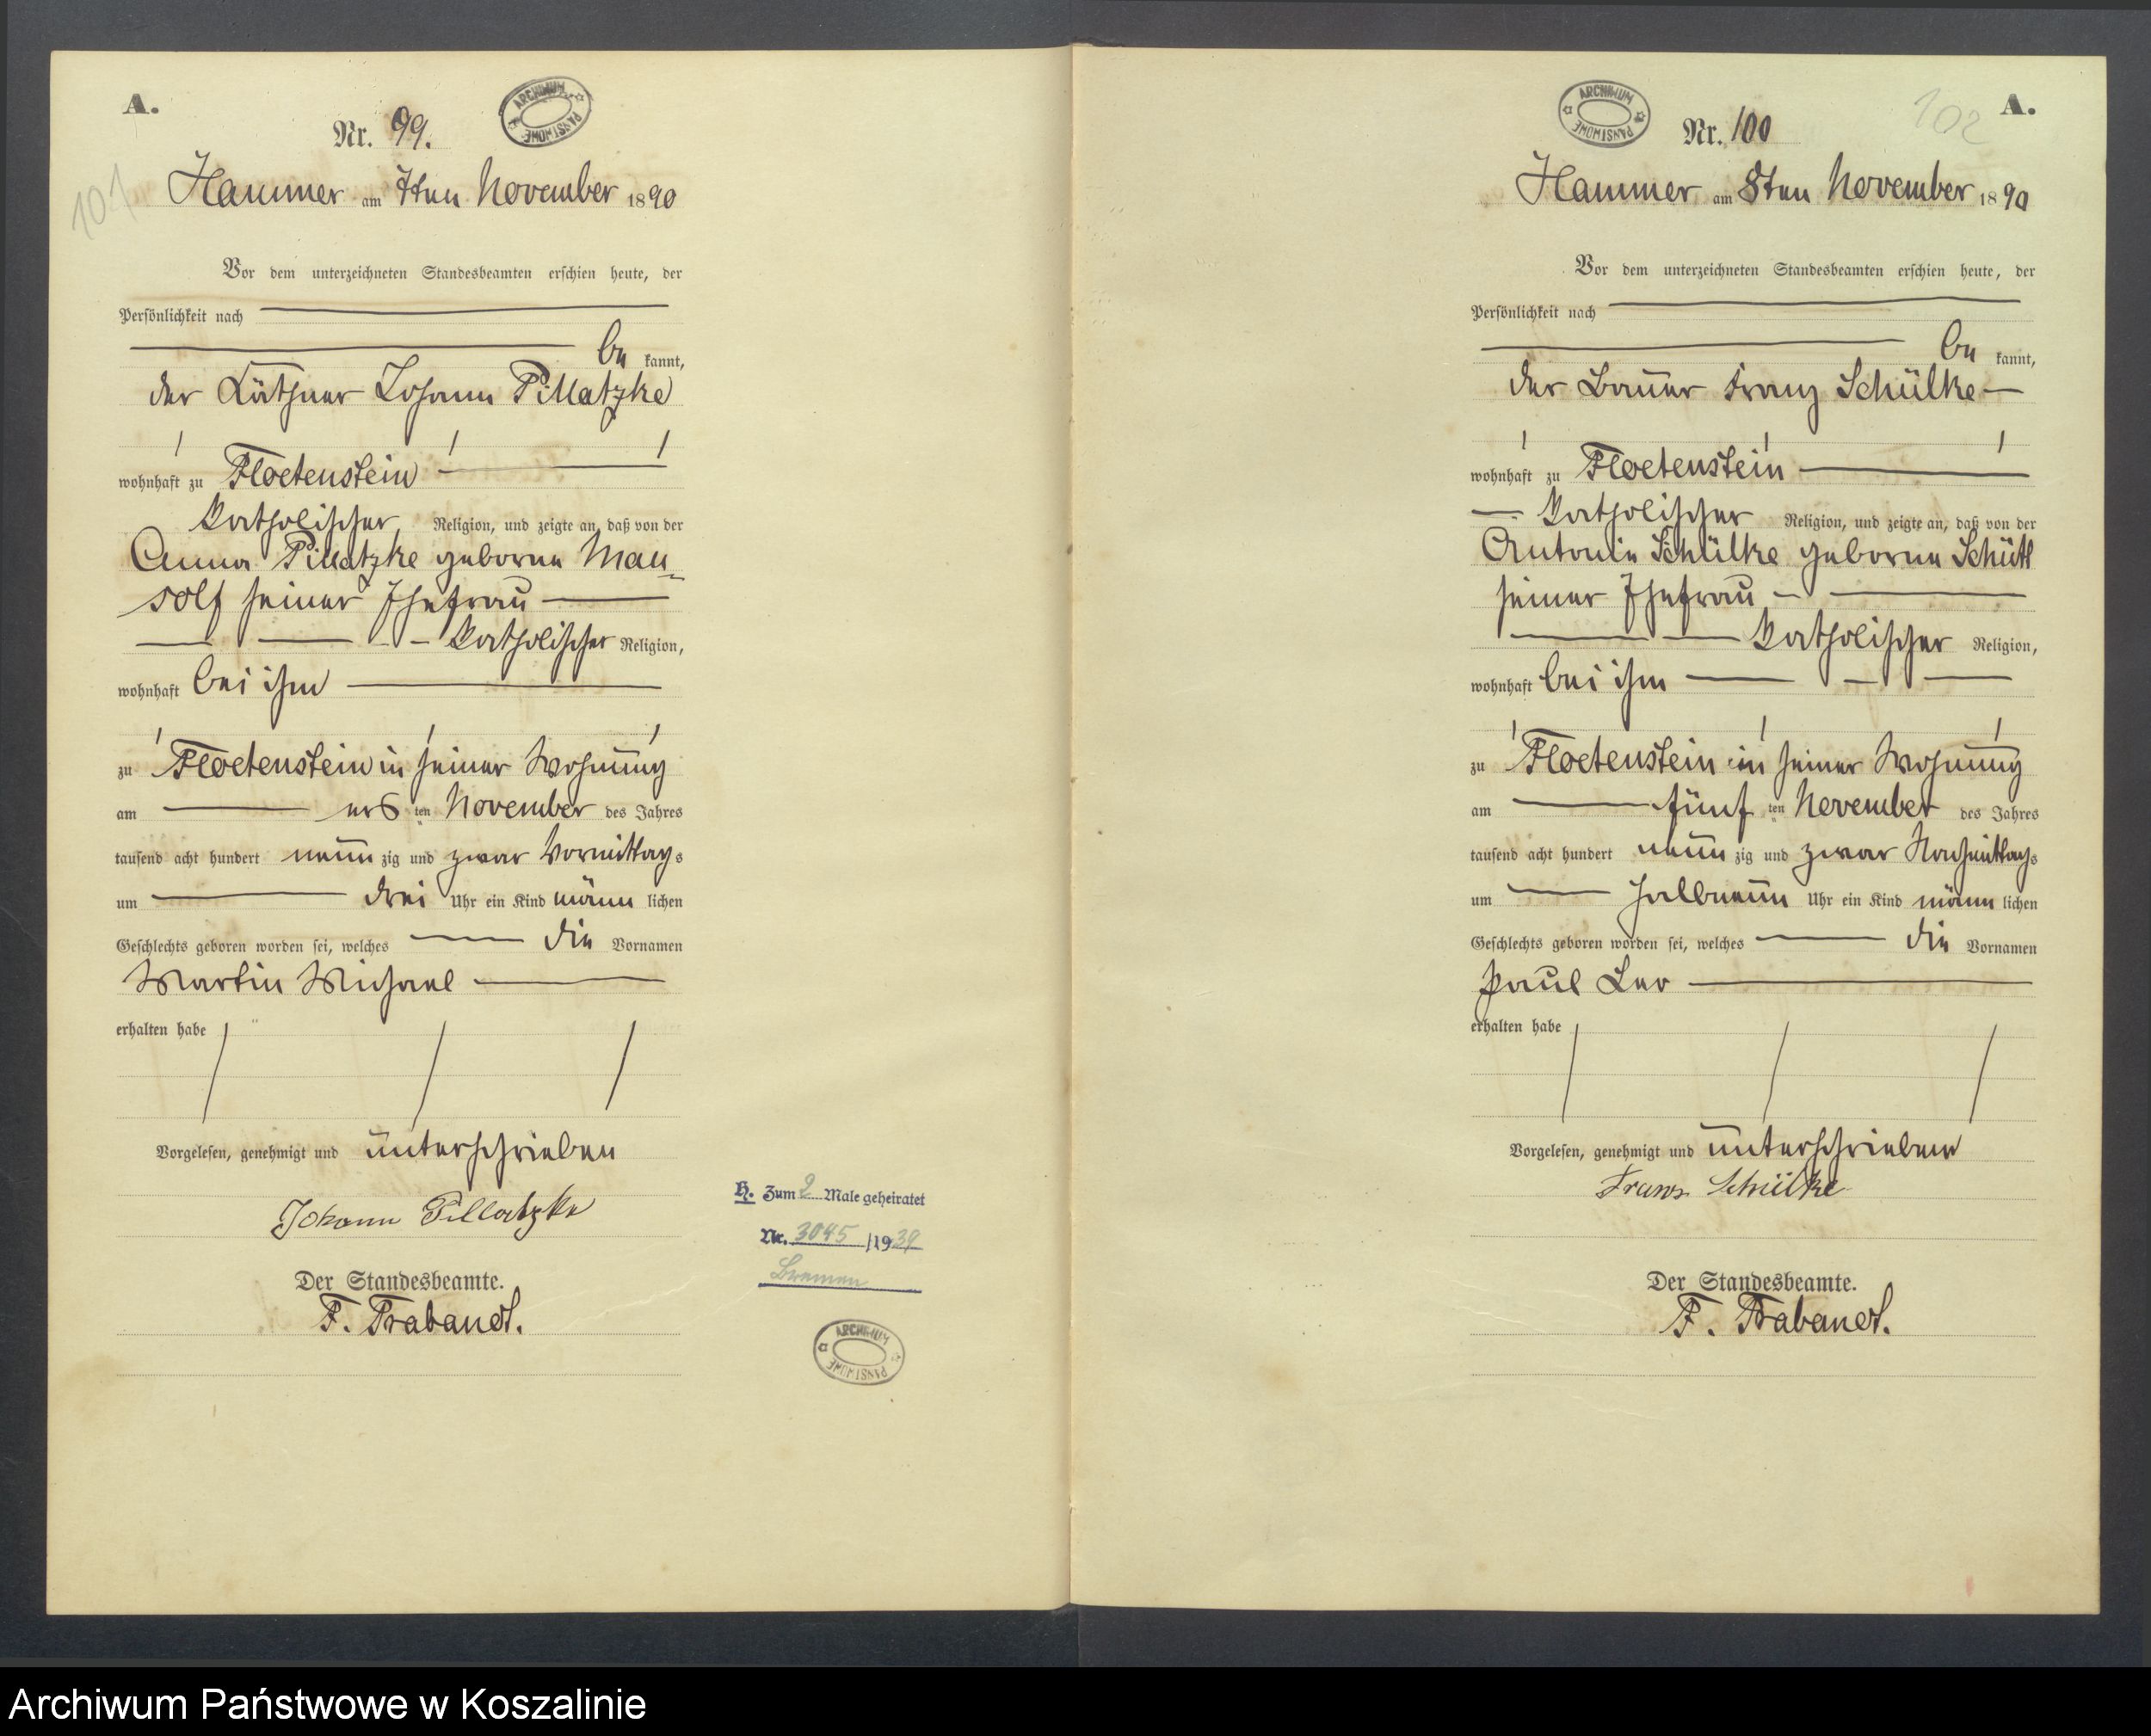 A.
Nr. 99.
ARCHIWUM PAŃSTWOWE
101
Hammer am 7ten November 1890
Vor dem unterzeichneten Standesbeamten erschien heute, der
Persönlichkeit nach
be kannt,
der Käthner Johann Pillatzke
wohnhaft zu Floetenstein
katholischer Religion, und zeigte an, daß von der
Anna Pillatzke geborne Man-
solf seiner Ehefrau
katholischer Religion,
wohnhaft bei ihm
zu Floetenstein in seiner Wohnung
am ersten November des Jahres
tausend acht hundert neunzig und zwar Vormittags
um drei Uhr ein Kind männlichen
Geschlechts geboren worden sei, welches die Vornamen
Martin Michael
erhalten habe
Vorgelesen, genehmigt und unterschrieben
Johann Pillatzke
Der Standesbeamte.
F. Trabandt.
H. Zum 2 Male geheiratet
Nr. 3045/1939
Bremen
ARCHIWUM PAŃSTWOWE
ARCHIWUM PAŃSTWOWE
102
A.
Nr. 100
Hammer am 8ten November 1890
Vor dem unterzeichneten Standesbeamten erschien heute, der
Persönlichkeit nach
be kannt,
der Bauer Franz Schülke
wohnhaft zu Floetenstein
katholischer Religion, und zeigte an, daß von der
Antonie Schülke geborne Schütt
seiner Ehefrau
katholischer Religion,
wohnhaft bei ihm
zu Floetenstein in seiner Wohnung
am fünften November des Jahres
tausend acht hundert neunzig und zwar Nachmittags
um halbneun Uhr ein Kind männlichen
Geschlechts geboren worden sei, welches die Vornamen
Paul Leo
erhalten habe
Vorgelesen, genehmigt und unterschrieben
Franz Schülke
Der Standesbeamte.
F. Trabandt.
Archiwum Państwowe w Koszalinie